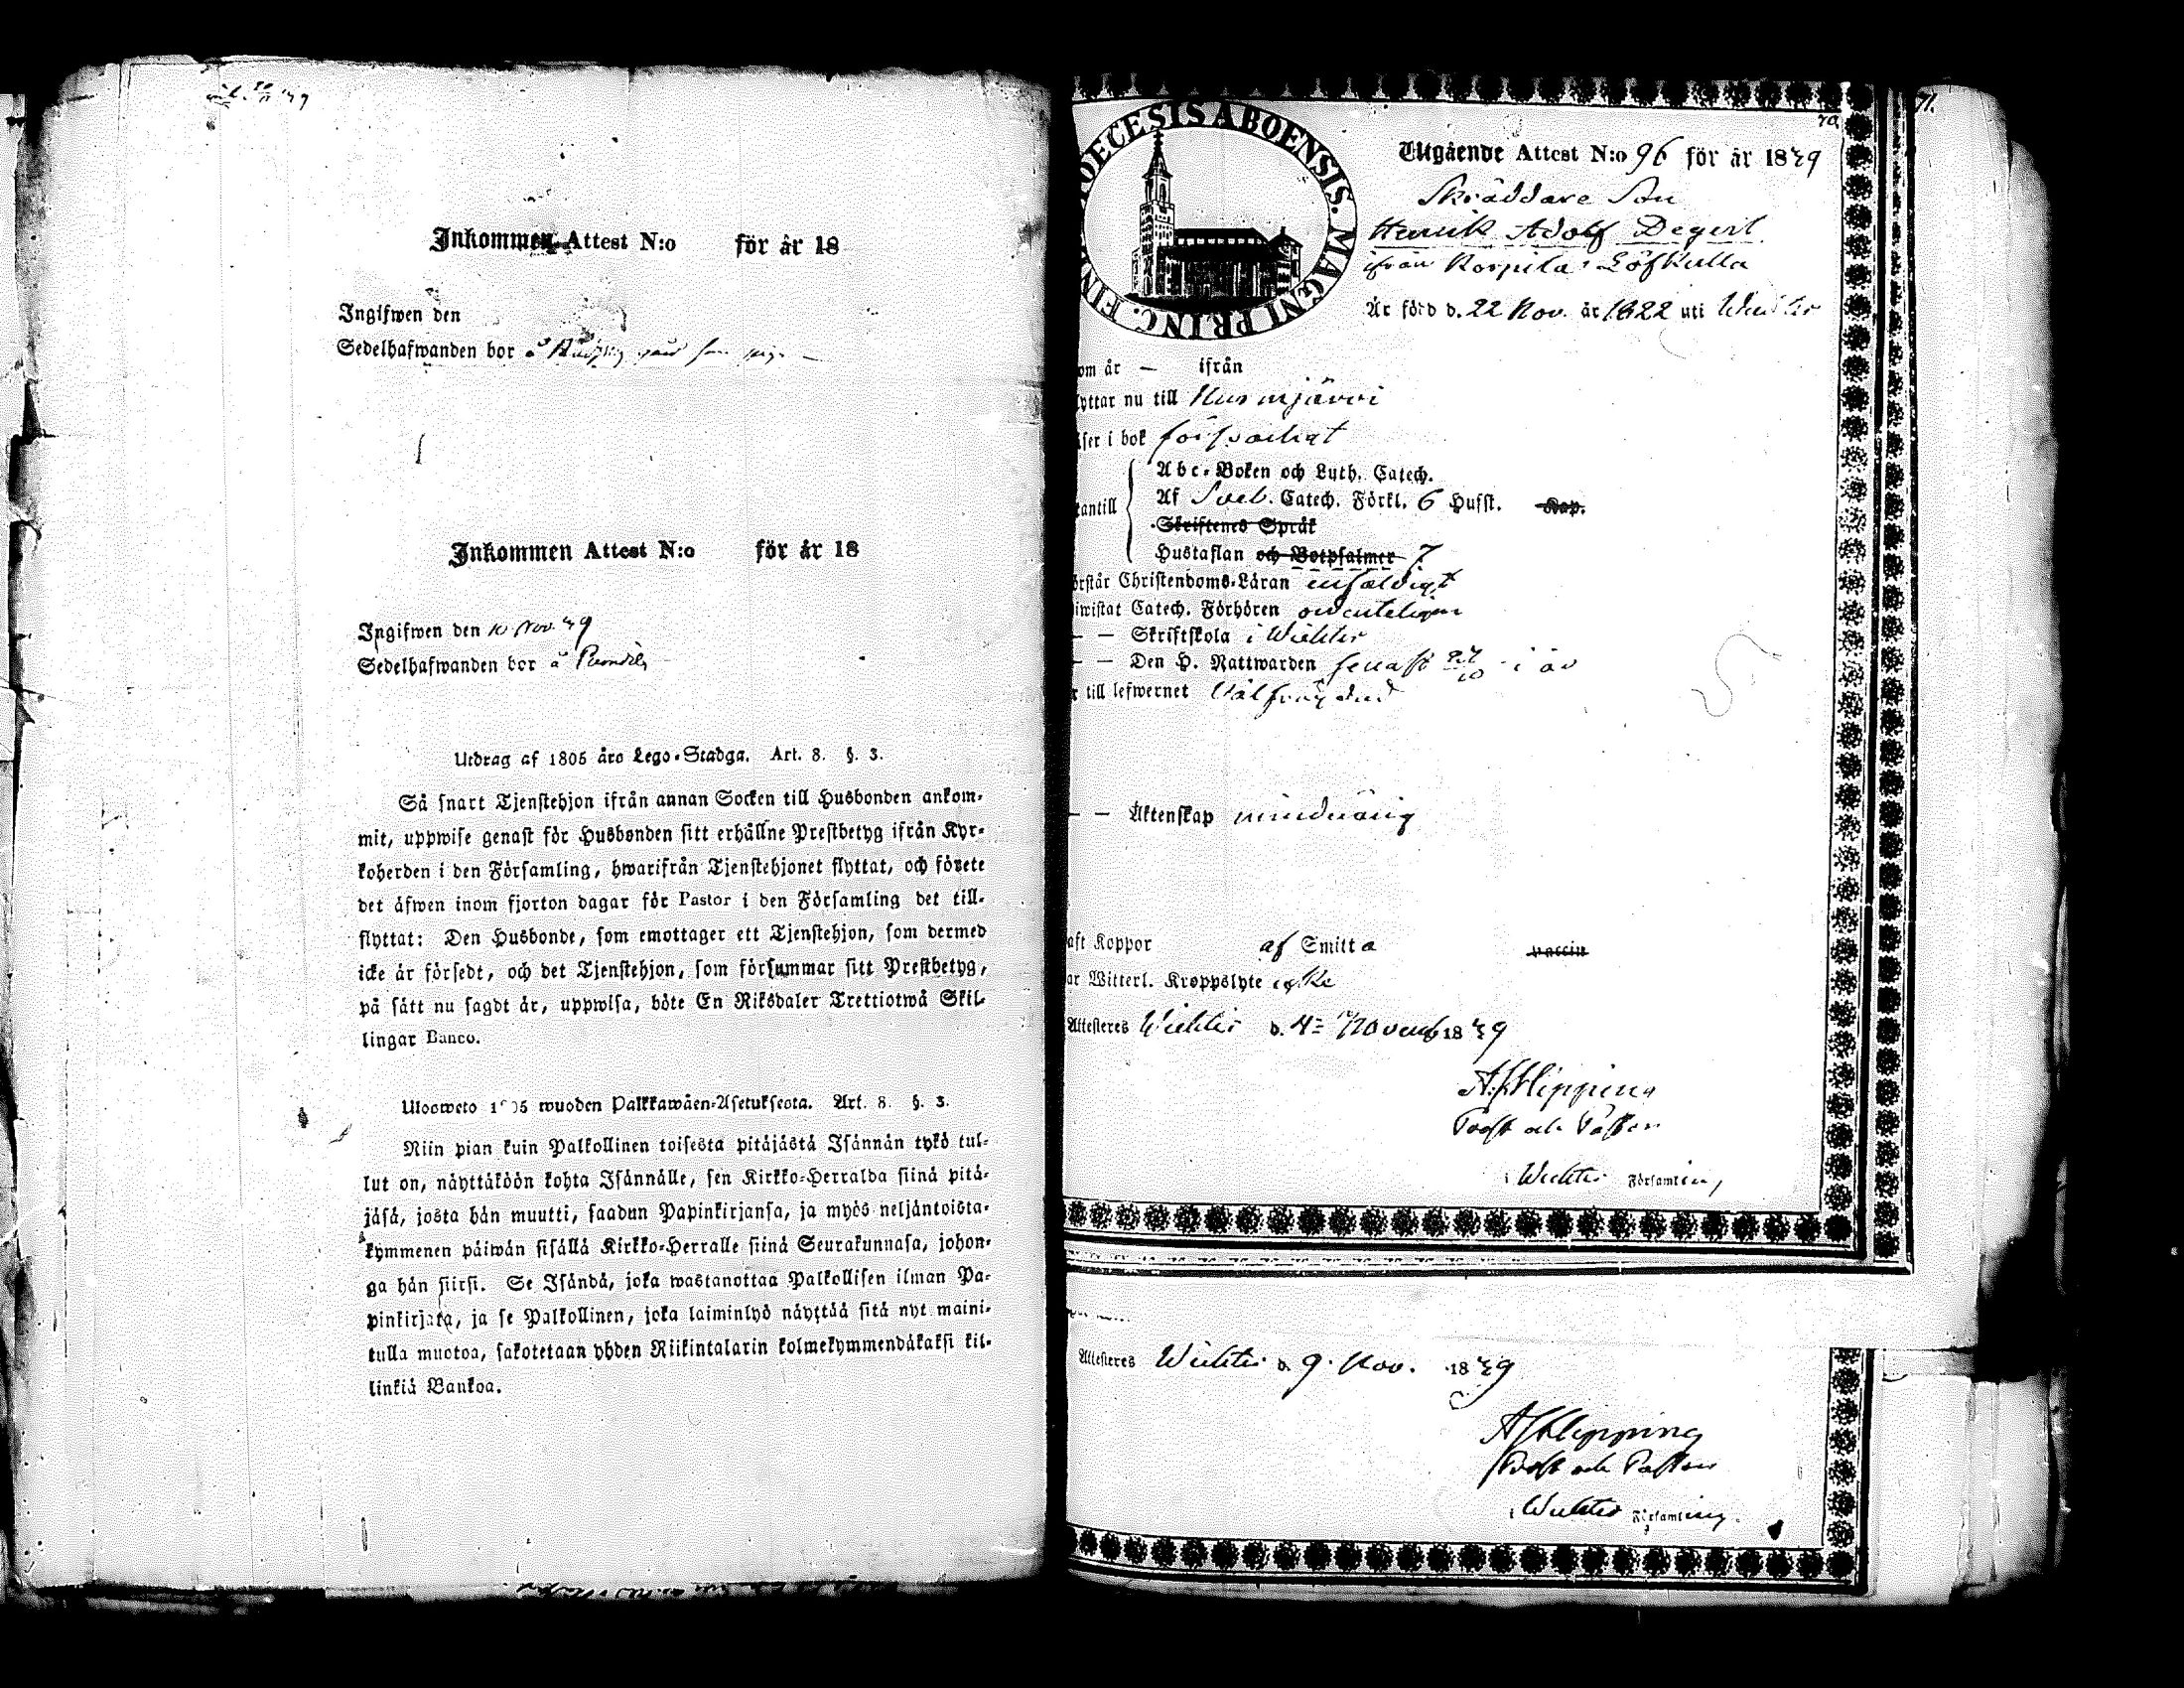 Inkommen Attest N:o för år 18
Ingifwen den
Sedelhafwanden bor å
Inkommen Attest N:o för år 18
Ingifwen den 10 Nov. 39
Sedelhafwanden bor å
Utdrag af 1805 års Lego-Stadga. Art. 8. §. 3.
Så snart Tjenstehjon ifrån annan Socken till Husbonden ankom-
mit, uppwise genast för Husbonden sitt erhållne Prestbetyg ifrån Kyr-
koherden i den Församling, hwarifrån Tjenstehjonet flyttat, och förete
det äfwen inom fjorton dagar för Pastor i den Församling det till-
flyttat: Den Husbonde, som emottager ett Tjenstehjon, som dermed
icke är försedt, och det Tjenstehjon, som försummar sitt Prestbetyg,
på sätt nu sagdt är, uppwisa, böte En Riksdaler Trettiotwå Skil-
lingar Banco.
Ulosweto 1805 wuoden Palkkawäen-Asetuksesta. Art. 8. §. 3.
Niin pian kuin Palkollinen toisesta pitäjästä Isännän tykö tul-
lut on, näyttäköön kohta Isännälle, sen Kirkko-Herralda siinä pitä-
jäsä, josta hän muutti, saadun Papinkirjansa, ja myös neljäntoista-
kymmenen päiwän sisällä Kirkko-Herralle siinä Seurakunnasa, johon-
ga hän siirsi. Se Isändä, joka wastanottaa Palkollisen ilman Pa-
pinkirjata, ja se Palkollinen, joka laiminlyö näyttää sitä nyt maini-
tulla muotoa, sakotetaan yhden Riikintalarin kolmekymmendäkaksi kil-
linkiä Bankoa.
71.
70
DIOECESIS ABOENSIS. MAGNI PRINC. FIN
Utgående Attest N:o 96 för år 1839
Skräddare Son
Henrik Adolf Degert
ifrån Korpila Löfkulla
Är född d. 22 Nov. år 1822 uti Wichtis
om år — ifrån
lyttar nu till Nurmijärvi
äser i bok försvarligt
tantill Abc-Boken och Luth. Catech.
Af Sveb. Catech. Förkl. 6 Hufst. Kap.
Skriftenes Språk
Hustaflan och Botpsalmer 7
örstår Christendoms-Läran enfaldigt
iwistat Catech. Förhören ordenteligen
— — Skriftskola i Wichtis
— — Den H. Nattwarden senast 27/10 i år
r till lefwernet Välfrägdad
— — Äktenskap minderårig
aft Koppor af Smitta vaccin
ar Witterl. Kroppslyte icke
Attesteres Wichtis d. 4 Novemb 1839
A. J. Hipping
Prost och Pastor
i Wichtis Församling
Attesteres Wichtis d. 9. Nov. 1839
A J Hipping
Prost och Pastor
i Wichtis Församling